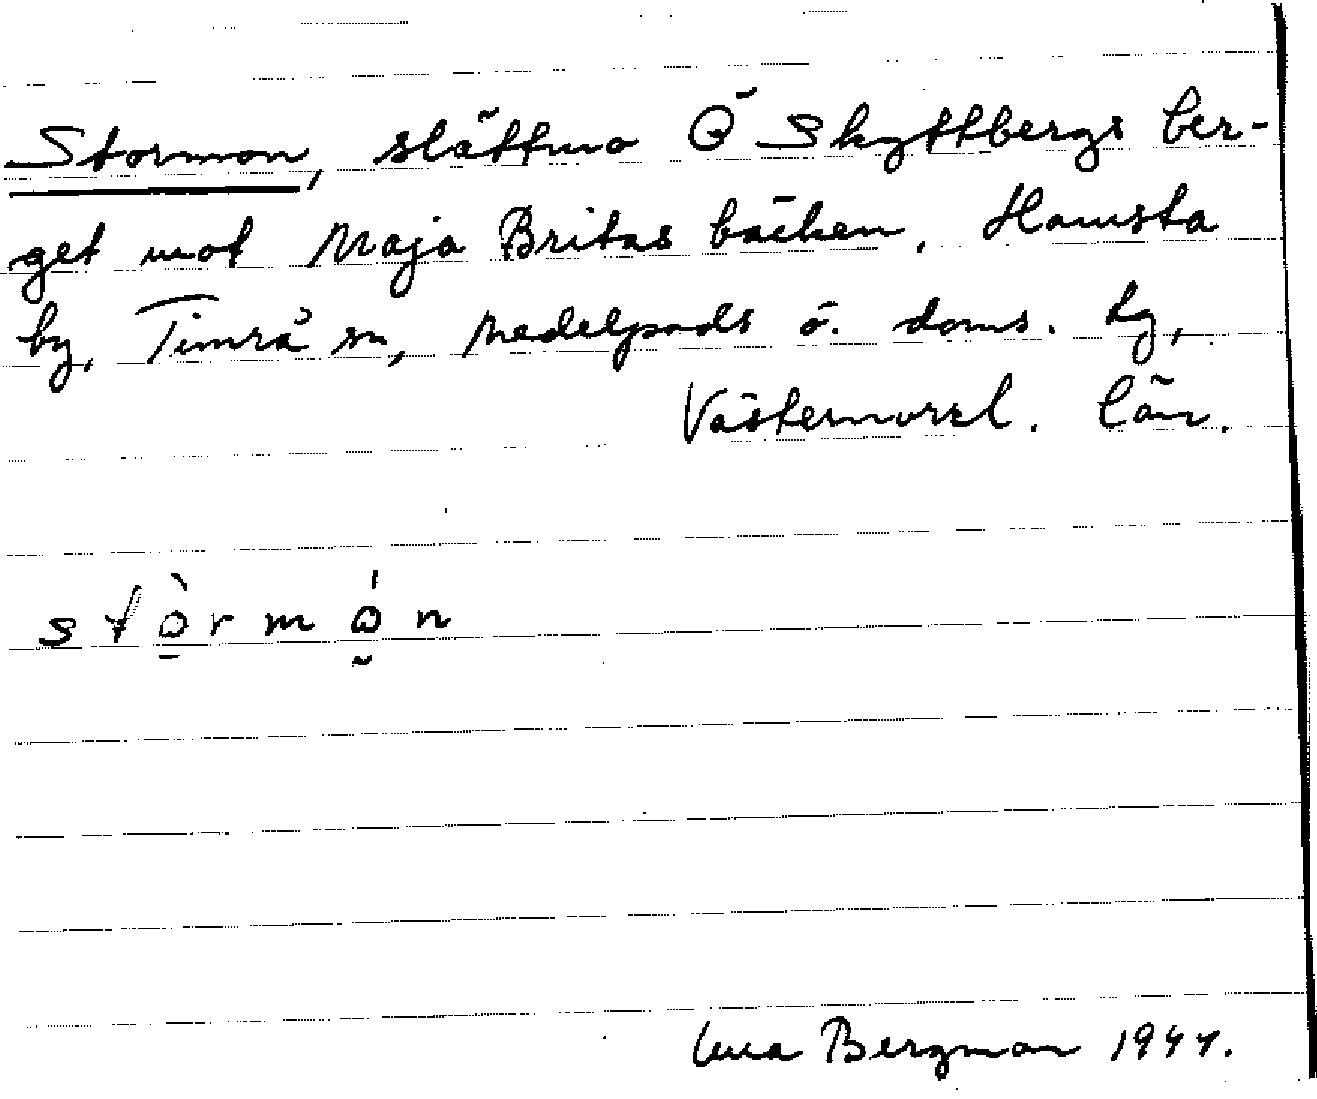 Stormon, slåttmo Ö Skyttbergs ber-
get mot Maja Britas bäcken, Hamsta
by, Timrå sn, Medelpads ö. doms. tg,
Västernorrl. län.
stòrmón
Bergman 1944.